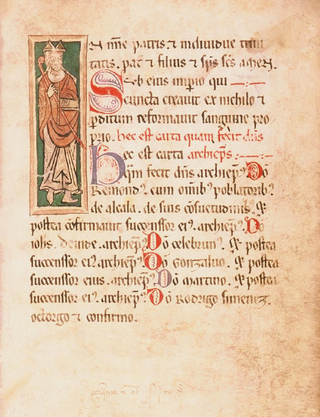 N nõie patris ⁊ individue trini
tatis. pat̃ ⁊ filius ⁊ sp̃s sc̃s amen.
Sub eius imperio qui
cuncta creavit ex nichilo ⁊
perditum reformavit sanguine pro
prio. hec est carta quam fecit dñs
Hec est carta archiep̃s.
quam fecit dñs archiep̃s. Dõ
Remond⁹. cum om̃ib⁹ populatorib⁹
de alcala. de suis cõsuetudinis. ⁊
postea cõfirmavit successor ei⁹ archiep̃s. Dõ
ioh̃s. deinde. archiep̃s Dõ celebrun⁹. ⁊ postea
successor ei⁹ archiep̃s. Dõ Gonzalvo. ⁊ postea
successor eius. archiep̃s. Dõ martino. ⁊ postea
successor ei⁹. archiep̃s. Dõ Rodrigo simenez.
otorgo ⁊ confirmo.